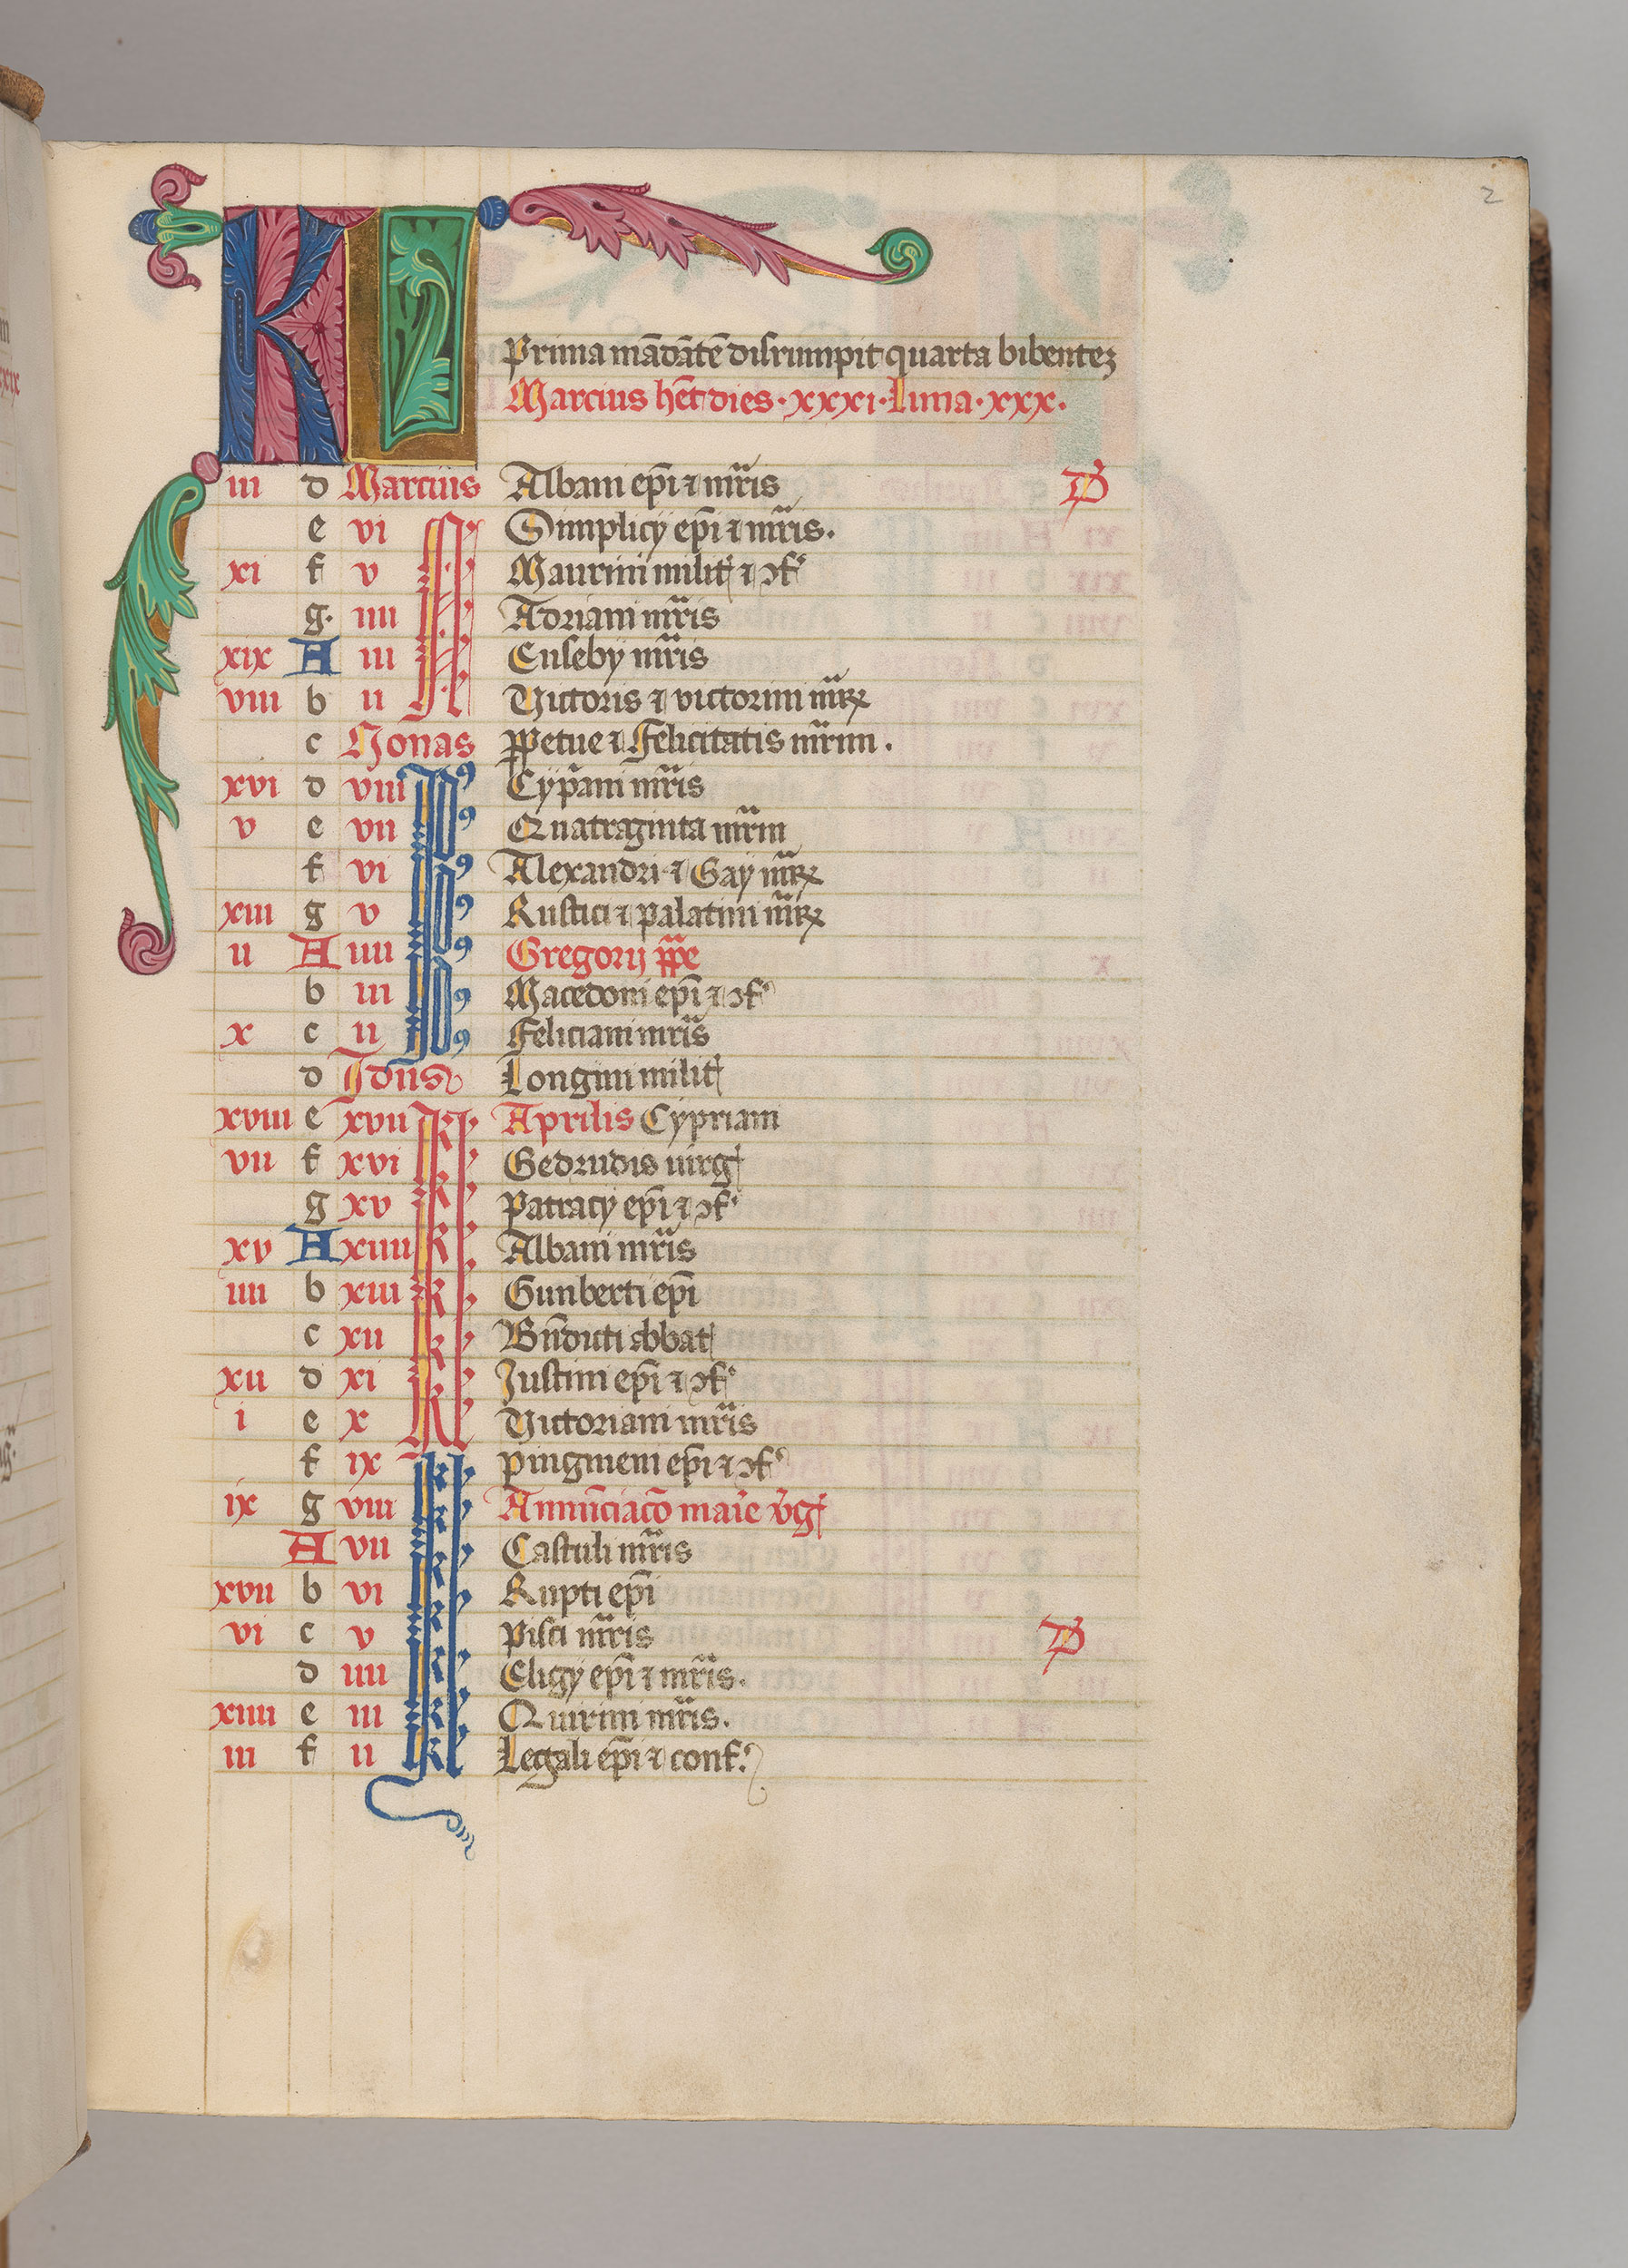 2
KL
Prima mādātē disrumpit quarta bibentez
Marcius hēt dies · xxxi · Luna · xxx ·
iii d Marcius Albani ep̄i ⁊ mr̄is D
e vi N Simplicij ep̄i ⁊ mr̄is.
xi f v Maurini milit ⁊ ꝯf
g. iiii Adriani mr̄is
xix A iii Euseby mr̄is
viii b ii Victoris ⁊ victorini mr̄ꝝ
c Nonas ꝑpetue ⁊ Felicitatis mr̄im .
xvi d viii Idꝰ Cyp̄ani mr̄is
v e vii Quatraginta mr̄im
f vi Alexandri ⁊ Gay mr̄ꝝ
xiii g v Rustici ⁊ palatini mr̄ꝝ
ii A iiii Gregorij ꝑpe
b iii Macedoni ep̄i ⁊ ꝯf
x c ii Feliciani mr̄is
d Idus Longini milit
xviii e xvii kl Aprilis Cypriani
vii f xvi kl Gedrudis uirg
g xv kl Patracy ep̄i ⁊ ꝯf
xv A xiiii kl Albani mr̄is
iiii b xiii kl Gunberti ep̄i
c xii kl Bn̄dicti abbat
xii d xi kl Justini ep̄i ⁊ ꝯf
i e x kl Victoriani mr̄is
f ix kl pingmeni ep̄i ⁊ ꝯf
ix g viii kl Annūciacō marie v̄g
A vii kl Castuli mr̄is
xvii b vi kl Rupti ep̄i
vi c v kl Pisci mr̄is D
d iiii kl Eligy ep̄i ⁊ mr̄is.
xiiii e iii kl Quirini mr̄is.
iii f ii kl Legali ep̄i ⁊ conf.